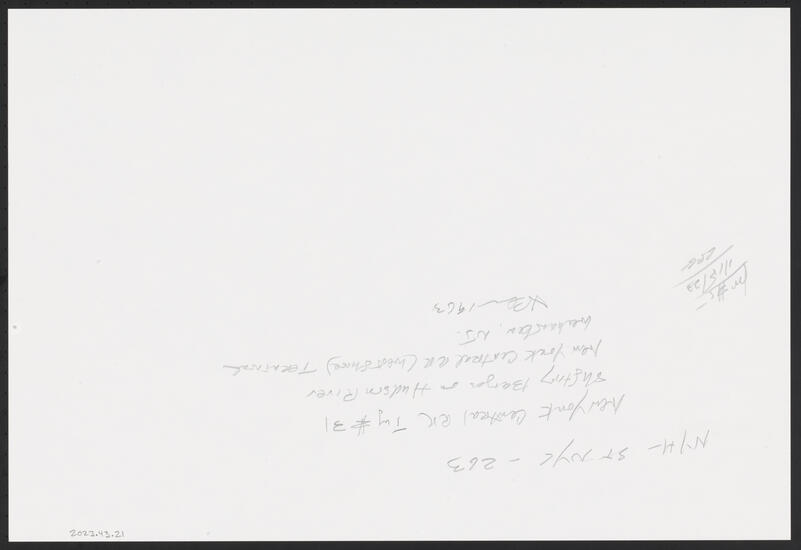 NYH - ST. NYC - 263
New York Central RR Tug #31
Shifting Barges on Hudson River
New York Central RR (West Shore) Terminal
Weehawken, NJ.
1963
1/15/23
2023.43.21